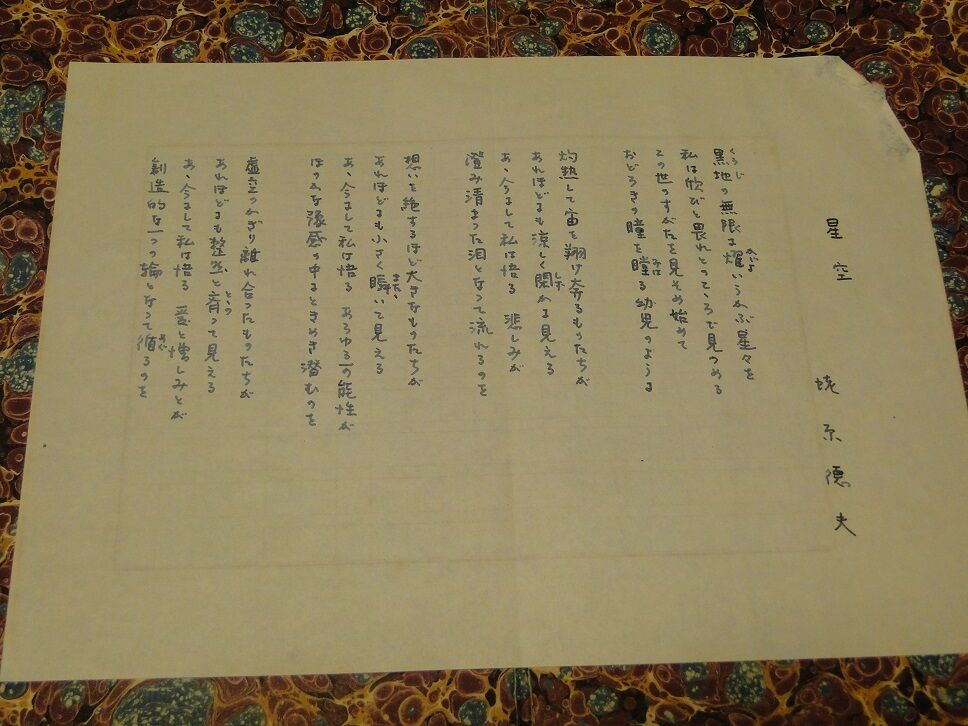 星空
蛯原德夫
黒地の無限に燿いうかぶ星々を
くろじ
かがよ
私は欣びと畏れとっていろで見つめる
この世のすがたを見そめ始めて
おどろきの瞳を瞠る幼児のように
みは
灼熱して宙を翔け奔るものたちが
あれほどにも涼しく閑かに見える
しず
あゝ今にして私は悟る 悲しみが
澄み清まった泪となって流れるのを
想いを絶するほど大きなものたちが
あれほどにも小さく瞬いて見える
またた
あゝ今にして私は悟る あらゆる可能性が
ほのかな予感の中にときめき潜むのを
虚空のかぎり離れ合ったものたちが
あれほどにも整然と斉って見える
ととの
あゝ今にして私は悟る 愛と憎しみとが
創造的な一つの輪となって循るのを
めぐ